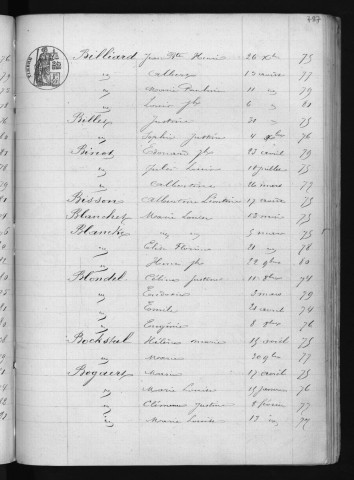 757
Billiard Jean Bte Henri 26 Xbre 75
" Albert 13 77
" Marie Pauline 11 " 79
" Louis Jh 6 " 80
Billet Justine 20 " 75
" Sophie Justine 4 Xbre 76
Binot Edouard Jh 23 avril 79
" Jules Louis 10 juillet 75
" Albertine 26 mars 77
Bisson Albertine 17 75
Blanchet Marie Louise 12 mars 75
" " 5 mars 75
" Elise Florine 20 " 78
" Henri Jh 22 9bre 80
Blondel Céline Justine 11 8bre 74
" 3 mars 79
" Emile 21 avril 74
" Eugénie 8 9bre 76
Hélène Marie 15 avril 75
" Marie 20 9bre 77
Bogaert Marie 17 avril 75
" Marie Louise 15 janvier 76
" Clémence Justine 8 février 77
" Marie Louise 13 "